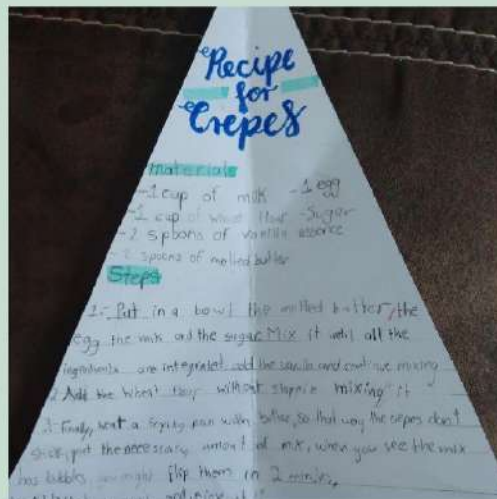 Recipe
for
Crepes
Materials
-1 cup of milk -1 egg
-1 cup of wheat flour -Sugar
-2 spoons of vanilla essence
-2 spoons of melted butter
Steps
1:- Put in a bowl the melted butter, the
egg the milk and the sugar Mix it until all the
ingredients are integrated add the vanilla and continue mixing
2 Add the wheat flour without mixing it
3- Finally, a frying pan with butter, so that way the crepes don't
stick, put the necessary amount of mix, when you see the mix
has bubbles, you might flip them in 2